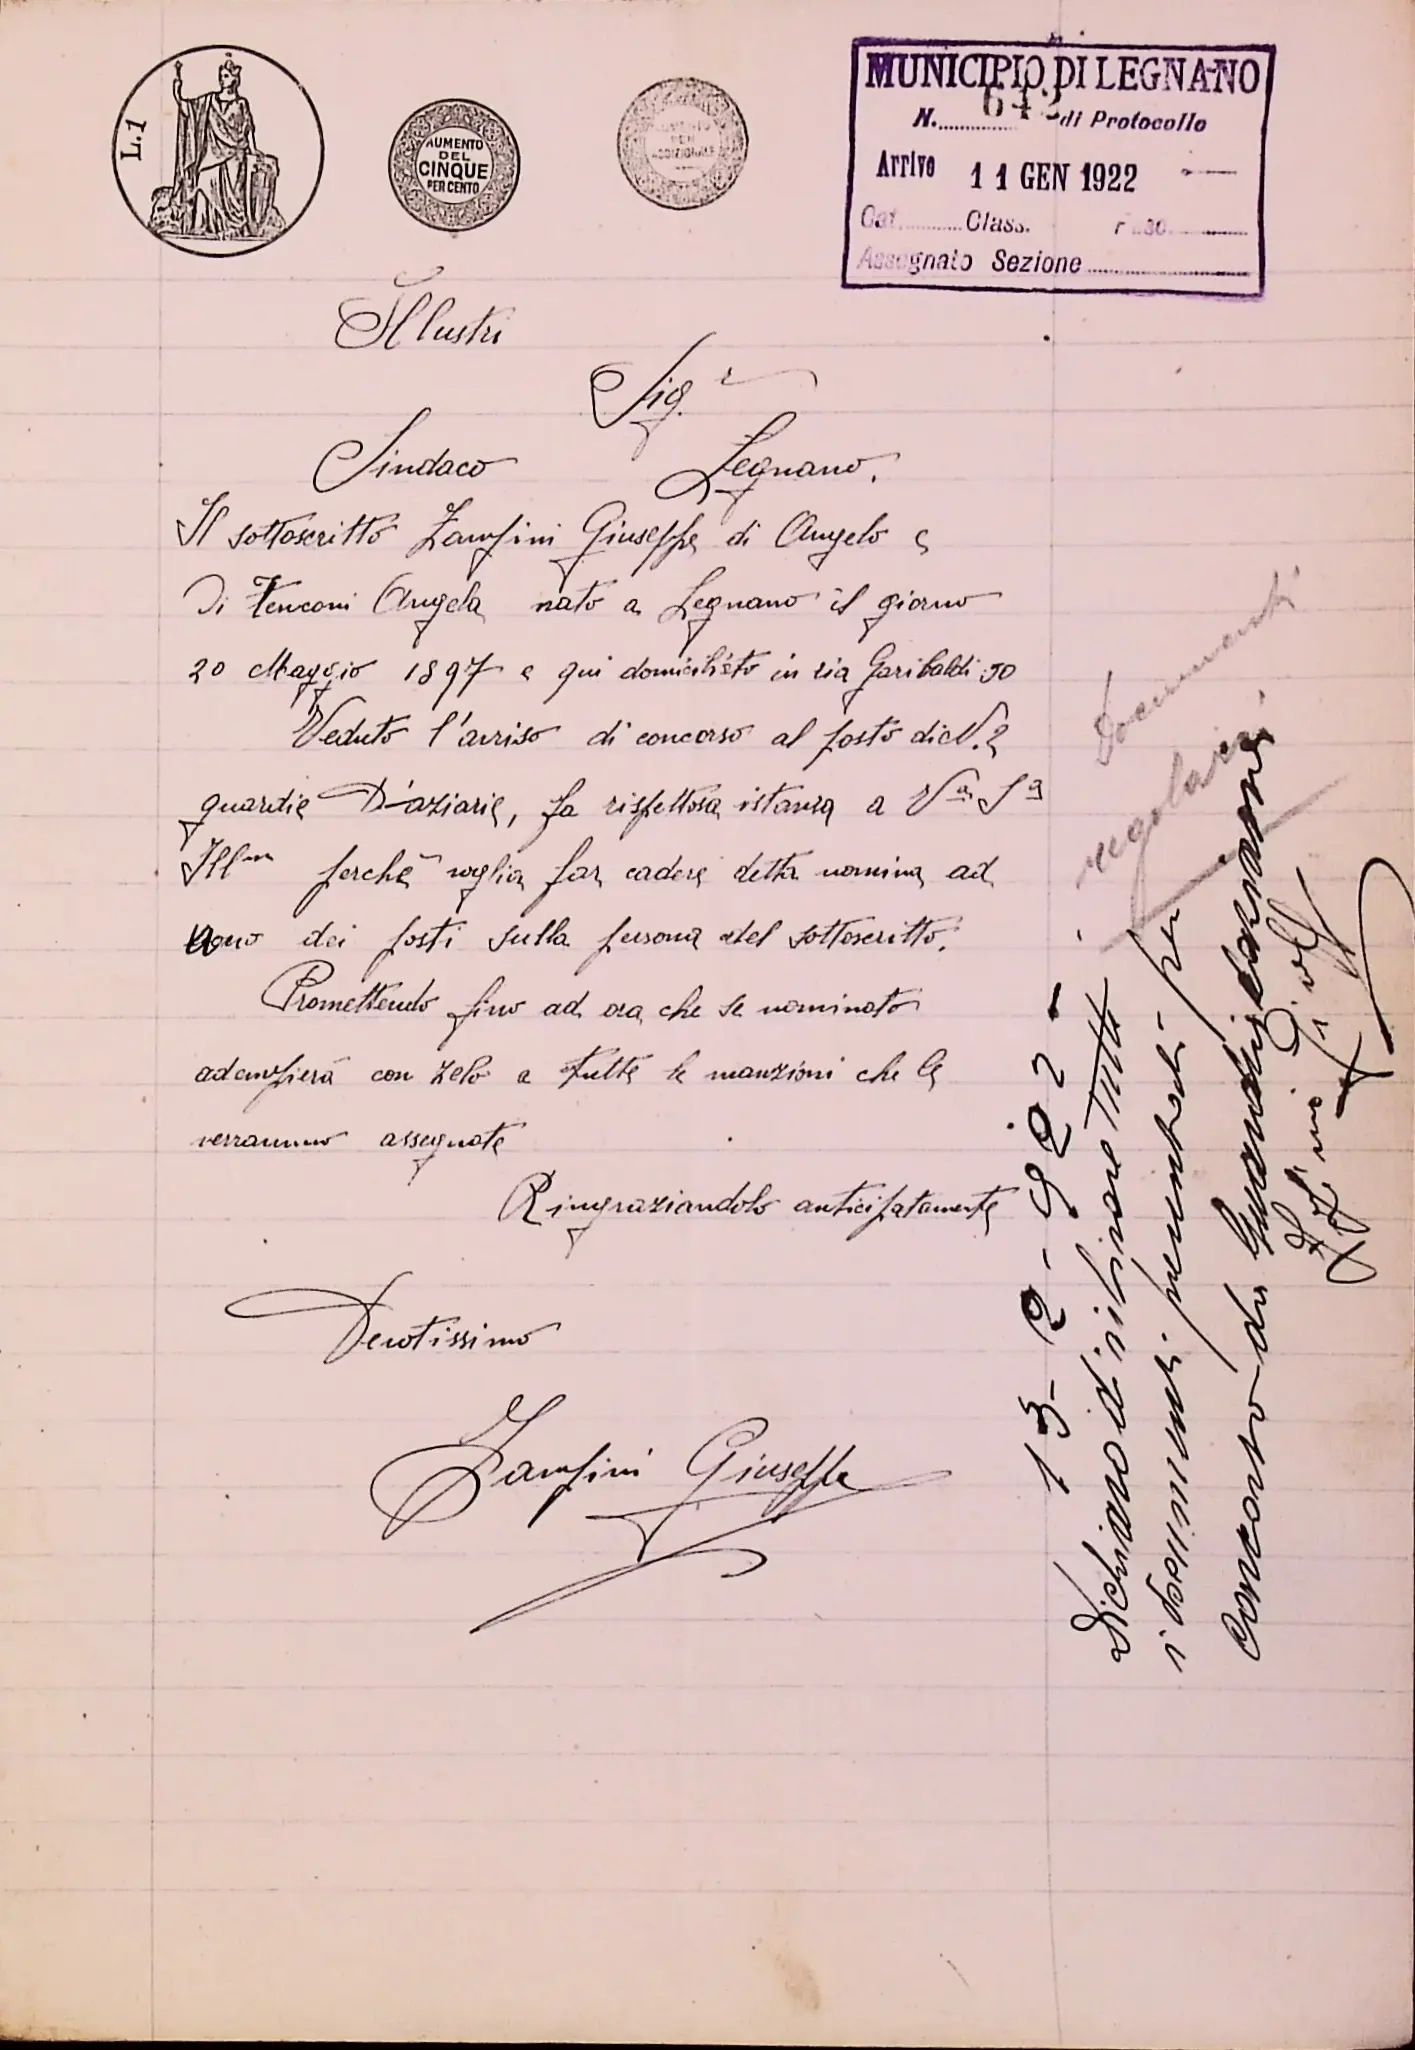 L.1
AUMENTO
DEL
CINQUE
PER CENTO
MUNICIPIO DI LEGNANO
N. 643 di Protocollo
Arrivo 11 GEN 1922
Cat. Class. Fasc.
Assegnato Sezione
Illustri
Sig.r
Sindaco Legnano.
Il sottoscritto Zamfini Giuseppe di Angelo e
Di Tenconi Angela nato a Legnano il giorno
20 Maggio 1897 e qui domiciliato in via Garibaldi 50
Veduto l'avviso di concorso al posto di N. 2
guardie Daziarie, fa rispettosa istanza a Va Sa
Illma perchè voglia far cadere detta nomina ad
uno dei posti sulla persona del sottoscritto.
Promettendo fino ad ora che se nominato
adempierà con zelo a tutte le manzioni che le
verranno assegnate
Ringraziandolo anticipatamente
Devotissimo
Zamfini Giuseppe
Documenti
regolari
13-2-922-
Dichiaro di ritirare tutti
i documenti presentati per
concorso da Guardie daziarie